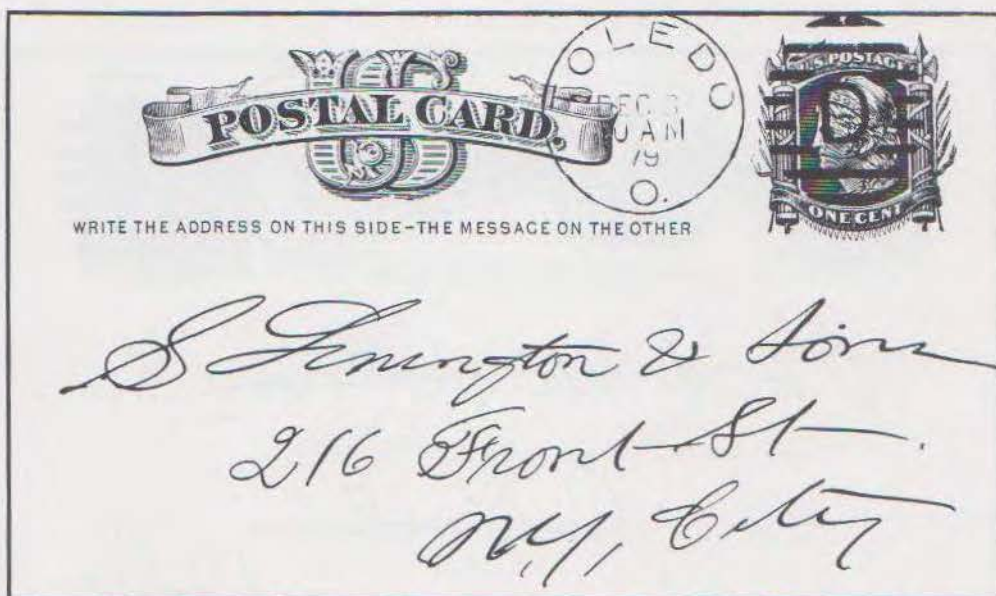 US
POSTAL CARD.
TOLEDO
DEC 3
10 AM
79
O.
U.S. POSTAGE
D
ONE CENT
WRITE THE ADDRESS ON THIS SIDE-THE MESSAGE ON THE OTHER
S & Sons
216 Front St.
N.Y, City